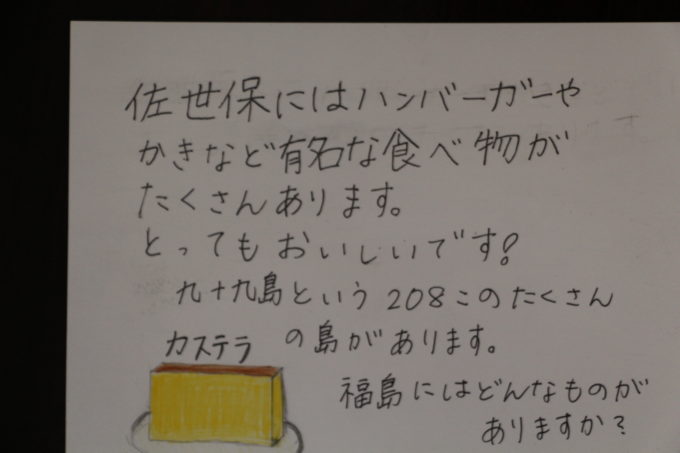 佐世保にはハンバーガーや
かきなど有名な食べ物が
たくさんあります。
とってもおいしいです!
九十九島という208このたくさん
の島があります。
カステラ
福島にはどんなものが
ありますか?